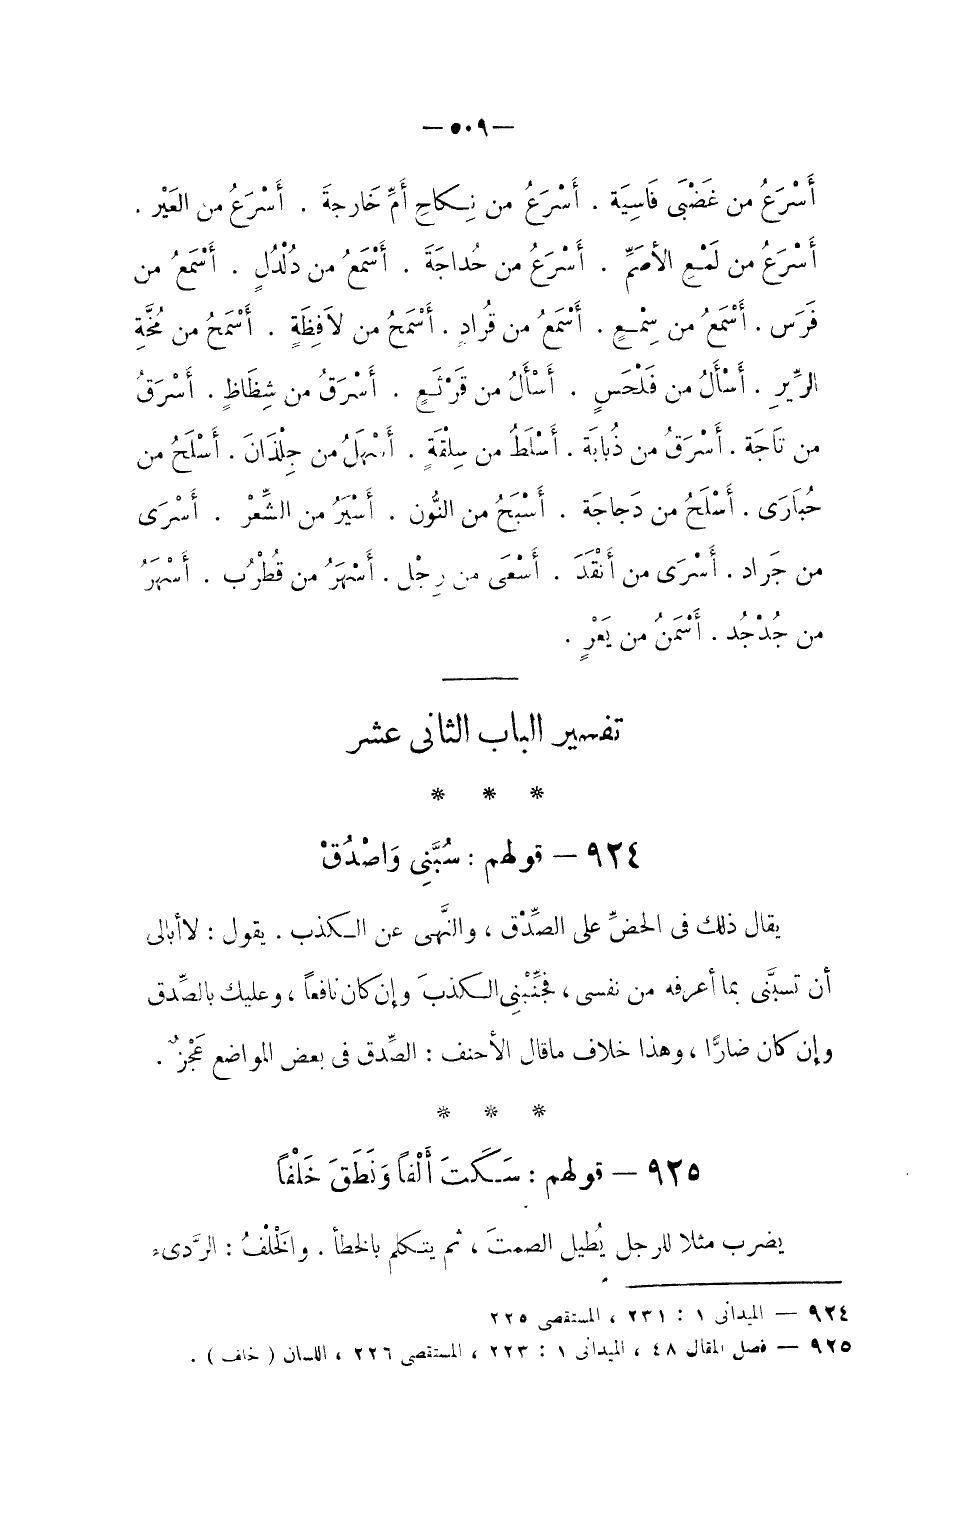 — ٥٠٩ —
أَسْرَعُ من غَضْبَى فَاسِيَة . أَسْرَعُ من نِكاحِ أمِّ خَارجةَ . أَسْرَعُ من العَيْر .
أَسْرَعُ من لَمْعِ الأصَمِّ . أَسْرَعُ من حُداجَةَ . أَسْمَعُ من دُلْدُلٍ . أَسْمَعُ من
فَرَس . أَسْمَعُ من سِمْعٍ . أَسْمَعُ من قُرادٍ . أَسْمَحُ من لاَفِظَةٍ . أَسْمَحُ من مُخَّةِ
الرِّيرِ . أَسْأَلُ من فَلْحَسٍ . أَسْأَلُ من قَرْثَعٍ . أَسْرَقُ من شِظَاظٍ . أَسْرَقُ
من تَاجَة . أَسْرَقُ من ذُبابَة . أَسْلَطُ من سِلْقَةٍ . أَسْهَلُ من جِلْذَانَ . أَسْلَحُ من
حُبَارَى . أَسْلَحُ من دَجاجَة . أَسْبَحُ من النُّون . أَسْيَرُ من الشِّعْرْ . أَسْرَى
من جَراد . أَسْرَى من أَنْقَدَ . أَسْعَى من رِجْل . أَسْهَرُ من قُطْرُب . أَسْهَرُ
من جُدْجُد . أَسْمَنُ من يَعْرٍ .
تفسير الباب الثانى عشر
* * *
٩٢٤ — قولهم : سُبَّنِى وَاصْدُقْ
يقال ذلك فى الحضِّ على الصِّدْق ، والنَّهى عن الـكذب . يقول : لاأبالى
أن تسبَّنى بما أعرفه من نفسى ، فجنِّبْنى الـكذبَ وإن كان نافعاً ، وعليك بالصِّدق
وإن كان ضارًّا ، وهذا خلاف ماقال الأحنف : الصِّدق فى بعض المواضع عَجْزٌ .
* * *
٩٢٥ — قولهم : سَـكَتَ أَلْفاً وَنَطَقَ خَلْفاً
يضرب مثلا للرجل يُطيل الصمتَ ، ثم يتكلم بالخطأ . والخَلْفُ : الرَّدىء
٩٢٤ — الميدانى ١ : ٢٣١ ، المستقصى ٢٢٥
٩٢٥ — فصل المقال ٤٨ ، الميدانى ١ : ٢٢٣ ، المستقصى ٢٢٦ ، اللسان ( خلف ) .